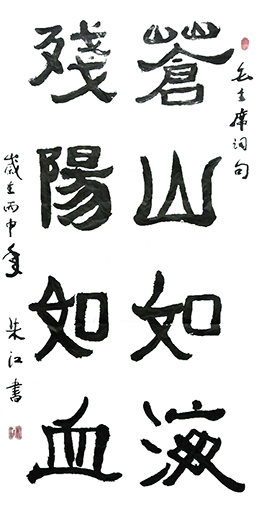 毛主席词句
蒼山如海
殘陽如血
歲至丙申年 朱江書